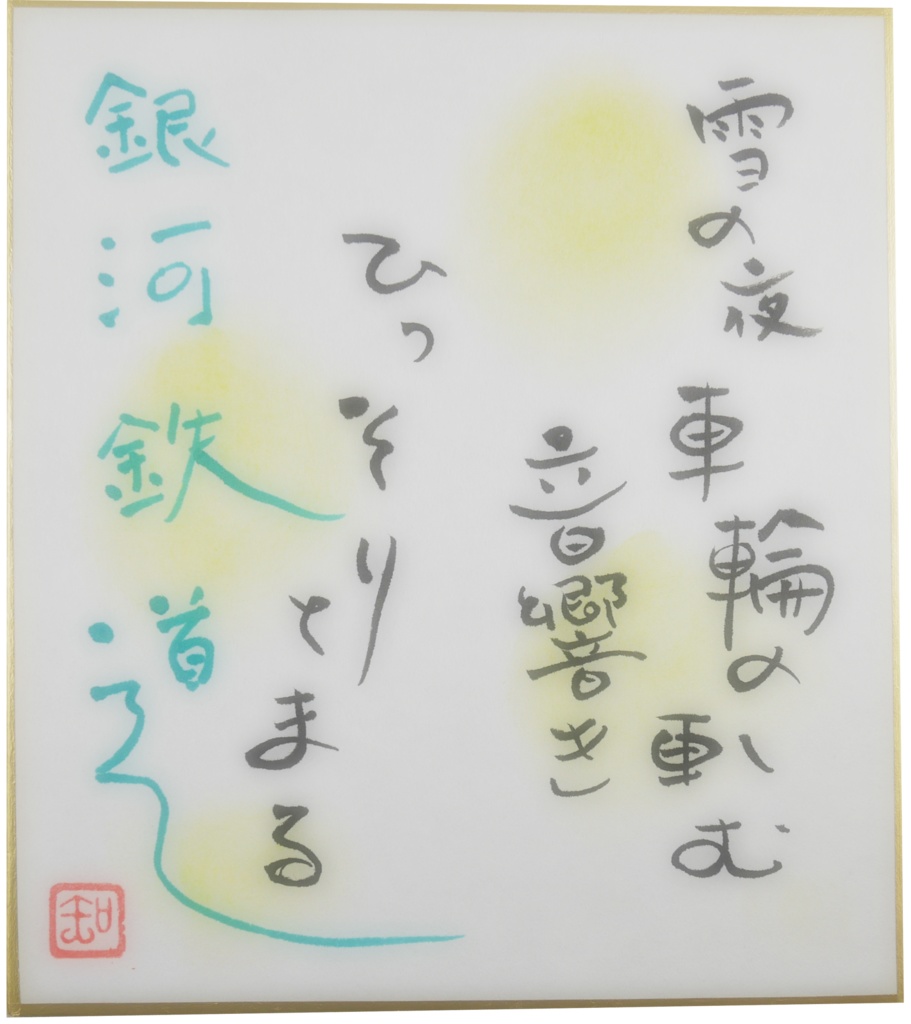 雪の夜 車輪の軋む
音響き
ひっそりとまる
銀河鉄道